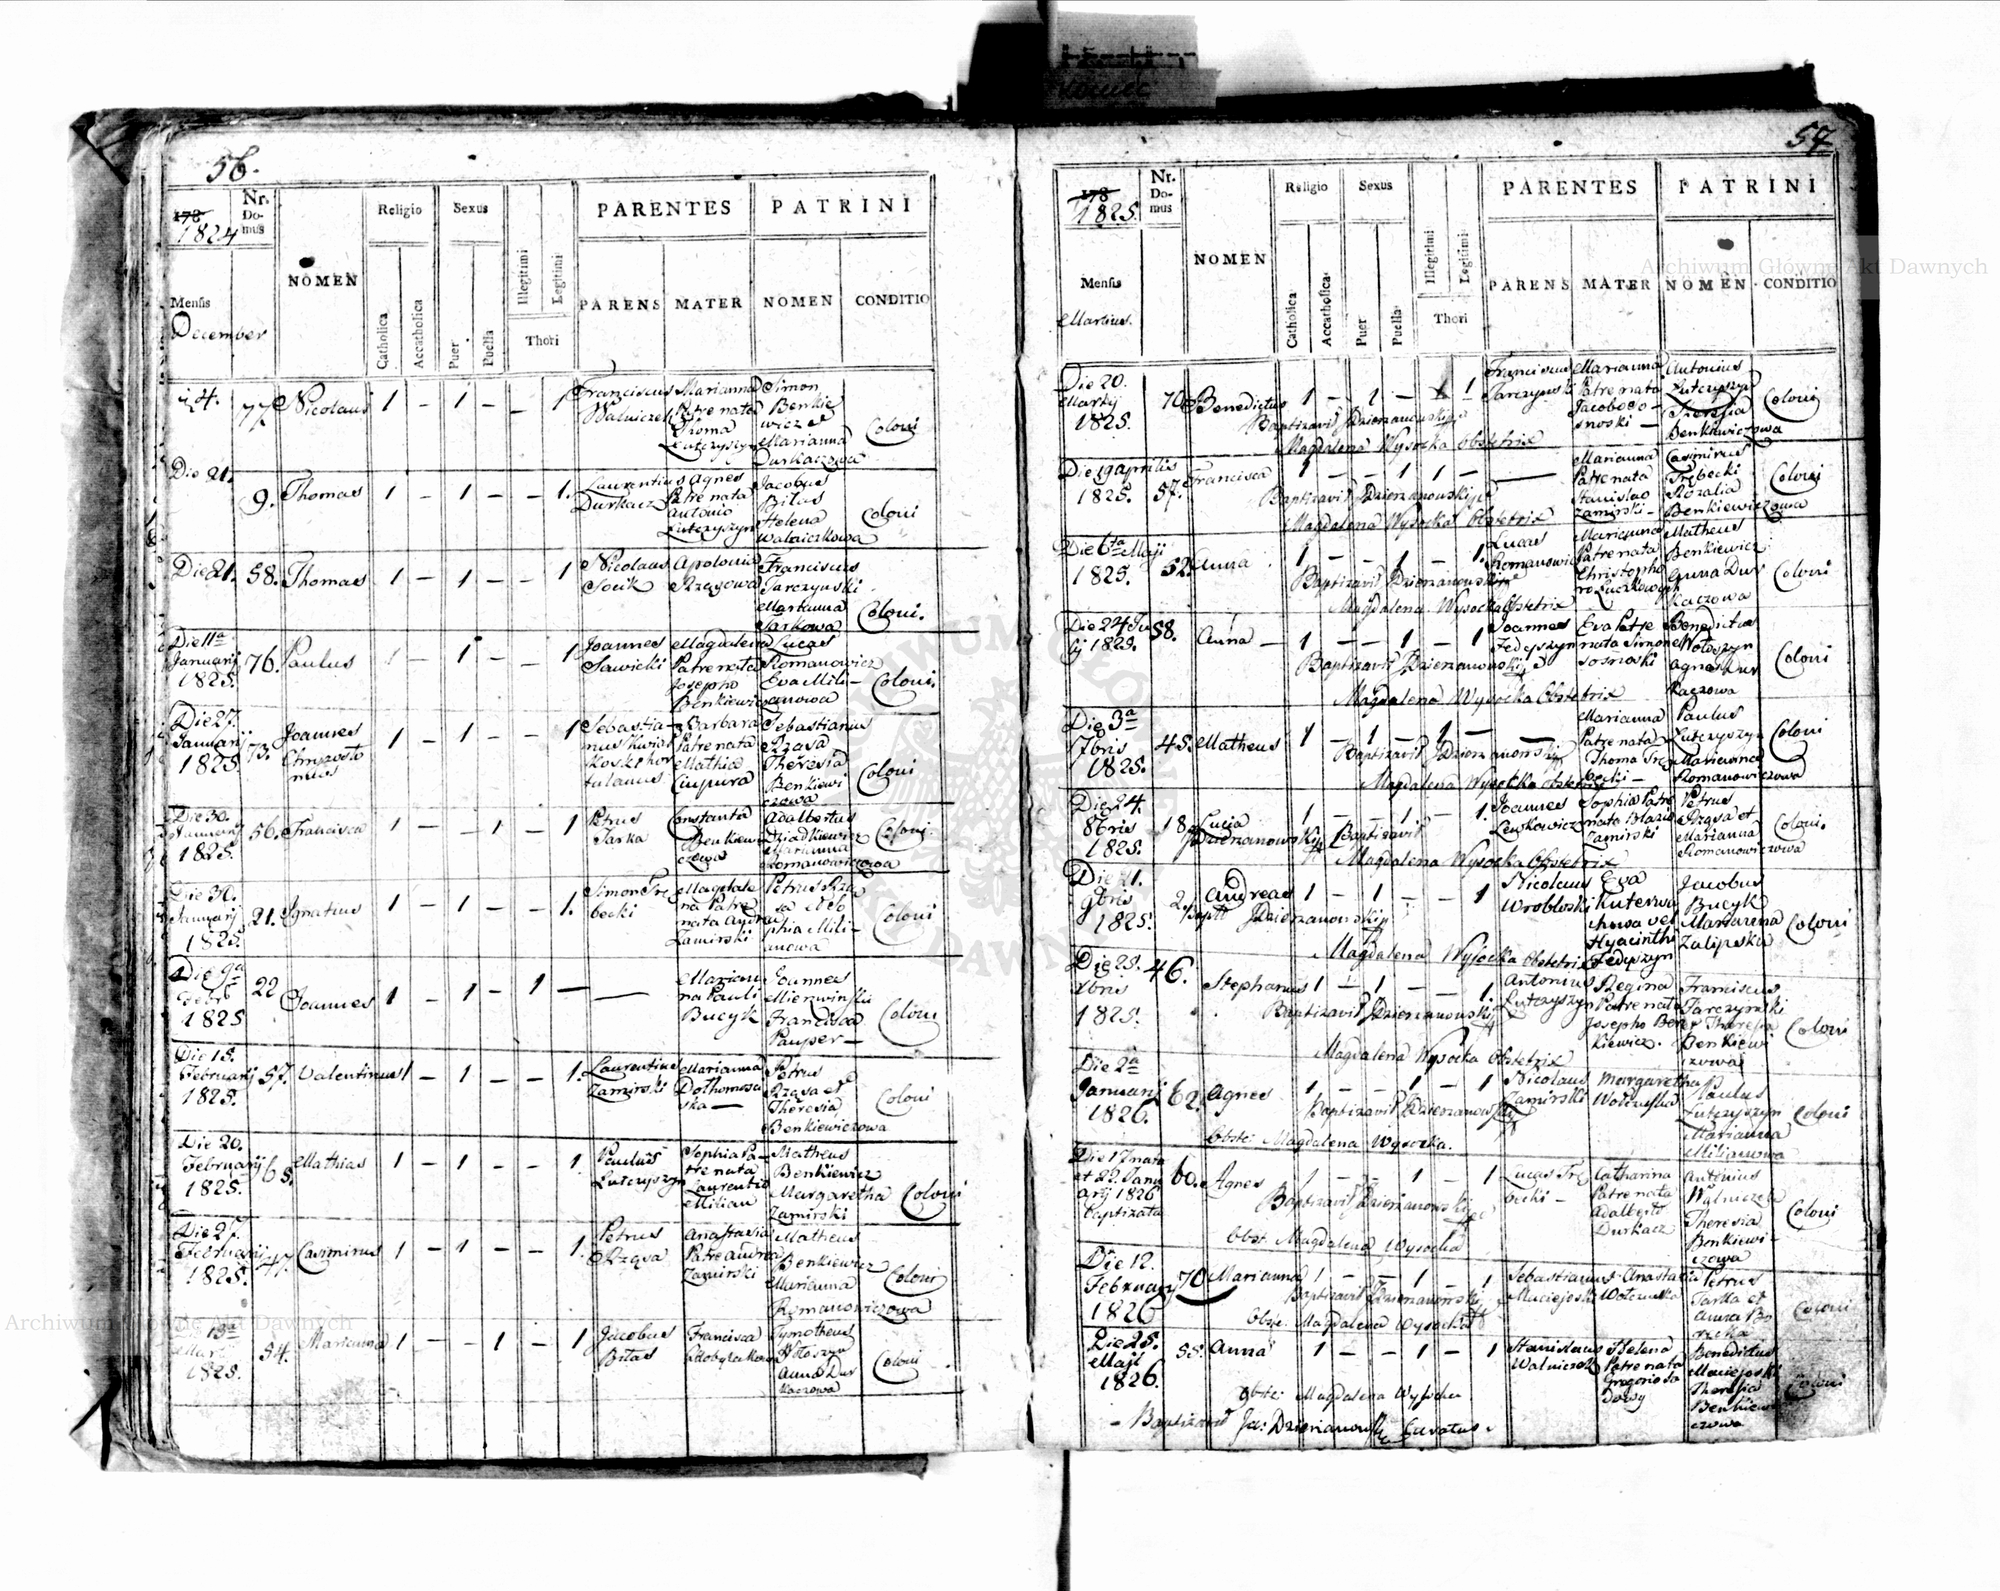 56.
178
1824
Nr. Domus
NOMEN
Religio
Sexus
Illegitimi
Legitimi
PARENTES
PATRINI
Mensis
December
Catholica
Accatholica
Puer
Puella
Thori
PARENS
MATER
NOMEN
CONDITIO
24. 77. Nicolaus 1 – 1 – – 1 Franciscus Walniczek Marianna Patre nata Thoma Lutczyszyn Simon Benkiewicz et Marianna Durkaczowa Coloni
Die 21. 9. Thomas 1 – 1 – – 1. Laurentius Durkacz Agnes Patre nata Antonio Lutczyszyn Jacobus Bilas Helena Walniczkowa Coloni
Die 21. 58. Thomas 1 – 1 – – 1 Nicolaus Socik Apolonia Rzęsowa Franciscus Tarczynski Marianna Tarkowa Coloni.
Die 11a Januarij 1825. 76. Paulus 1 – 1 – – 1. Joannes Sawicki Magdalena Patre nata Josepho Benkiewicz Lucas Romanowicz Eva Milianowa Coloni.
Die 27. Januarij 1825 73. Joannes 1 – 1 – – 1 Barbara Patre nata Mathia Ciupura Sebastianus Rząsa Theresia Benkiewiczowa Coloni
Die 30. Januarij 1825. 56. Francisca 1 – – 1 – 1 Petrus Tarka Constantia Benkiewiczowa Adalbertus Dziadkiewicz Marianna Romanowiczowa Coloni.
Die 30. Januarij 1825. 21. Ignatius 1 – 1 – – 1. Simon Trębecki Magdalena Patre nata Andrea Zamirski Petrus Rząsa et Sophia Milianowa Coloni
Die 9a Febr 1825 22 Joannes 1 – 1 – 1 – — Marianna Pauli Bucyk Joannes Mierwinski Francisca Pauper – Coloni
Die 15. Februarij 1825. 57. Valentinus 1 – 1 – – 1. Laurentius Zamirski Marianna Petrus Rząsa et Theresia Benkiewiczowa Coloni
Die 20. Februarij 1825. 65. Mathias 1 – 1 – – 1. Paulus Lutczyszyn Sophia Patre nata Laurentio Milian Matheus Benkiewicz Margaretha Zamirski Coloni
Die 27. Februarij 1825. 47. Casimirus 1 – 1 – – 1. Petrus Rząsa Anastasia Patre Andrea Zamirski Matheus Benkiewicz Marianna Romanowiczowa Coloni
13a Marti 1825. 54. Marianna 1 – – 1 – 1 Jacobus Bilas Francisca Tymotheus Wołoszyn Anna Durkaczowa Coloni
57
178
1825.
Nr. Domus
NOMEN
Religio
Sexus
Illegitimi
Legitimi
PARENTES
PATRINI
Mensis
Martius.
Catholica
Accatholica
Puer
Puella
Thori
PARENS
MATER
NOMEN
CONDITIO
Die 20. Martij 1825. 70. Benedictus 1 – 1 – 1 Franciscus Tarczynski Marianna Patre nata Jacobo Sosnoski – Antonius Lutczyszyn Theresia Benkiewiczowa Coloni
Baptizavit Dzierzanowski
Magdalena Wysocka Obstetrix
Die 19 Aprilis 1825. 57. Francisca 1 – – 1 1 – — Marianna Patre nata Stanislao Zamirski – Casimirus Trębecki Rozalia Benkiewiczowa Coloni
Baptizavit Dzierzanowski
Magdalena Wysocka Obstetrix
Die 6ta Maji 1825. 52. Anna 1 – – 1 – 1. Lucas Romanowicz Marianna Patre nata Christophoro Luczkowczyk Matheus Benkiewicz Anna Durkaczowa Coloni
Baptizavit Dzierzanowski
Magdalena Wysocka Obstetrix
Die 24 Julij 1825. 58. Anna – 1 – – 1 – 1 Joannes Fedyszyn Eva Patre nata Simone Sosnoski Benedictus Wołoszyn Agnes Durkaczowa Coloni
Baptizavit Dzierzanowski
Magdalena Wysocka Obstetrix
Die 3a 7bris 1825. 45. Matheus 1 – 1 – 1 – — Marianna Patre nata Thoma Trębecki – Paulus Lutczyszyn Marianna Romanowiczowa Coloni
Baptizavit Dzierzanowski
Magdalena Wysocka Obstetrix
Die 24. 8bris 1825. 18. Lucia 1 – – 1 – 1. Joannes Lewkowicz Sophia Patre nata Blasio Zamirski Petrus Rząsa et Marianna Romanowiczowa Coloni.
Dzierzanowski Baptizavit
Magdalena Wysocka Obstetrix
Die 11. 9bris 1825. 2. Andreas 1 – 1 – – 1 Nicolaus Wrobloski Eva Hyacinthi Fedyszyn Jacobus Bucyk Marianna Zalipska Coloni
Bapti Dzierzanowski
Magdalena Wysocka Obstetrix
Die 25. Xbris 1825. 46. Stephanus 1 – 1 – – 1. Antonius Lutczyszyn Regina Patre nata Josepho Benkiewicz. Franciscus Tarczynski et Theresia Benkiewiczowa Coloni
Baptizavit Dzierzanowski
Magdalena Wysocka Obstetrix
Die 2a Januarij 1826. 62. Agnes 1 – – 1 – 1 Nicolaus Zamirski Margaretha Paulus Lutczyszyn Marianna Milianowa Coloni
Baptizavit Dzierzanowski
Obste: Magdalena Wysocka.
Die 17 nata et 22. Januarij 1826 baptizata 60. Agnes 1 – – 1 – 1 Lucas Trębecki – Catharina Patre nata Adalberto Durkacz Antonius Walniczek Theresia Benkiewiczowa Coloni
Baptizavit Dzierzanowski
Obst. Magdalena Wysocka
Die 12. Februarij 1826 70 Marianna 1 – – 1 – 1 Sebastianus Maciejoski Anastasia Petrus Tarka et Anna Coloni
Baptizavit Dzierzanowski
Obste: Magdalena Wysocka
Die 25. Maji 1826. 55. Anna 1 – – 1 – 1 Stanislaus Walniczek Helena Patre nata Gregorio Benedictus Maciejoski Theresia Benkiewiczowa Coloni
Obste: Magdalena Wysocka
– Baptizavit Ja: Dzierzanowski Curatus.
Archiwum Główne Akt Dawnych
Archiwum Główne Akt Dawnych